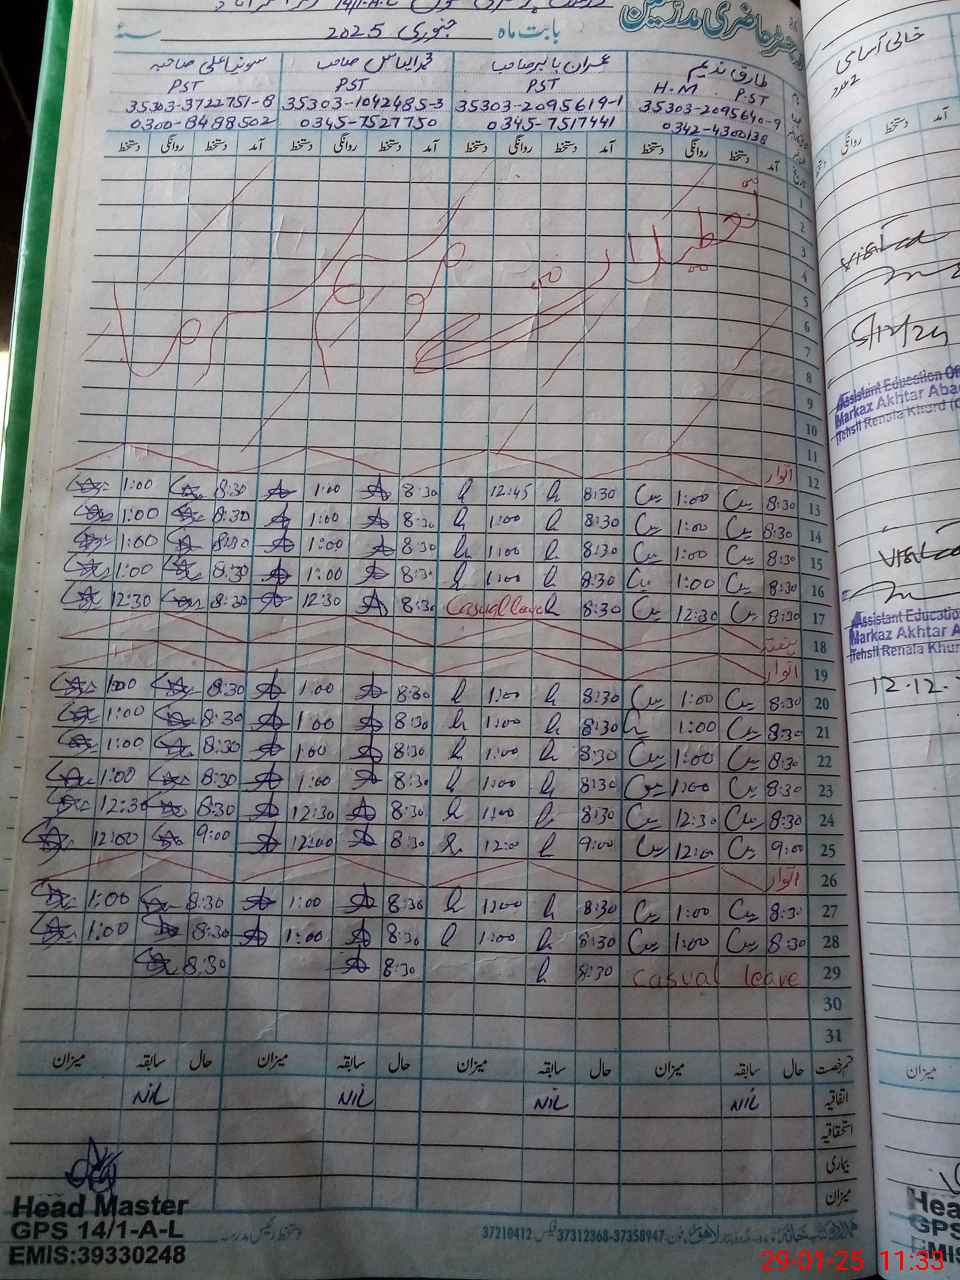 رجسٹر حاضری مدرسین
بابت ماہ جنوری 2025 سنہ
طارق ندیم عمران بابر صاحب محمد الیاس صاحب سونیا علی صاحبہ
H.M. PST PST PST PST
35303-2095640-9 35303-2095619-1 35303-1042485-3 35303-3722751-8
0342-4300138 0345-7517441 0345-7527750 0300-8488502
تاریخ آمد دستخط روانگی دستخط آمد دستخط روانگی دستخط آمد دستخط روانگی دستخط آمد دستخط روانگی دستخط
1
2
3
4
5
6
7
8
9
10
11
تعطیلات موسم سرما
12 اتوار
13 8:30 1:00 8:30 12:45 8:30 1:00 8:30 1:00
14 8:30 1:00 8:30 1:00 8:30 1:00 8:30 1:00
15 8:30 1:00 8:30 1:00 8:30 1:00 8:30 1:00
16 8:30 1:00 8:30 1:00 8:30 1:00 8:30 1:00
17 8:30 12:30 8:30 Casual leave 8:30 12:30 8:30 12:30
18 ہفتہ
19 اتوار
20 8:30 1:00 8:30 1:00 8:30 1:00 8:30 1:00
21 8:30 1:00 8:30 1:00 8:30 1:00 8:30 1:00
22 8:30 1:00 8:30 1:00 8:30 1:00 8:30 1:00
23 8:30 1:00 8:30 1:00 8:30 1:00 8:30 1:00
24 8:30 12:30 8:30 1:00 8:30 12:30 8:30 12:30
25 9:00 12:00 9:00 12:00 8:30 12:00 9:00 12:00
26 اتوار
27 8:30 1:00 8:30 1:00 8:30 1:00 8:30 1:00
28 8:30 1:00 8:30 1:00 8:30 1:00 8:30 1:00
29 casual leave 8:30 8:30 8:30
30
31
قسم رخصت حال سابقہ میزان حال سابقہ میزان حال سابقہ میزان حال سابقہ میزان
اتفاقیہ NIL NIL NIL NIL
استحقاقیہ
بیماری
میزان
دستخط رئیس مدرسہ
37210412 فیکس 37312368-37358947
Head Master
GPS 14/1-A-L
EMIS:39330248
خالی آسامی
آمد دستخط روانگی دستخط
visited
5/12/24
Assistant Education
Markaz Akhtar Aba
Tehsil Renala Khurd
visited
Assistant Education
Markaz Akhtar A
Tehsil Renala Khur
12.12.
میزان
Head
GPS
EMIS
29-01-25 11:33